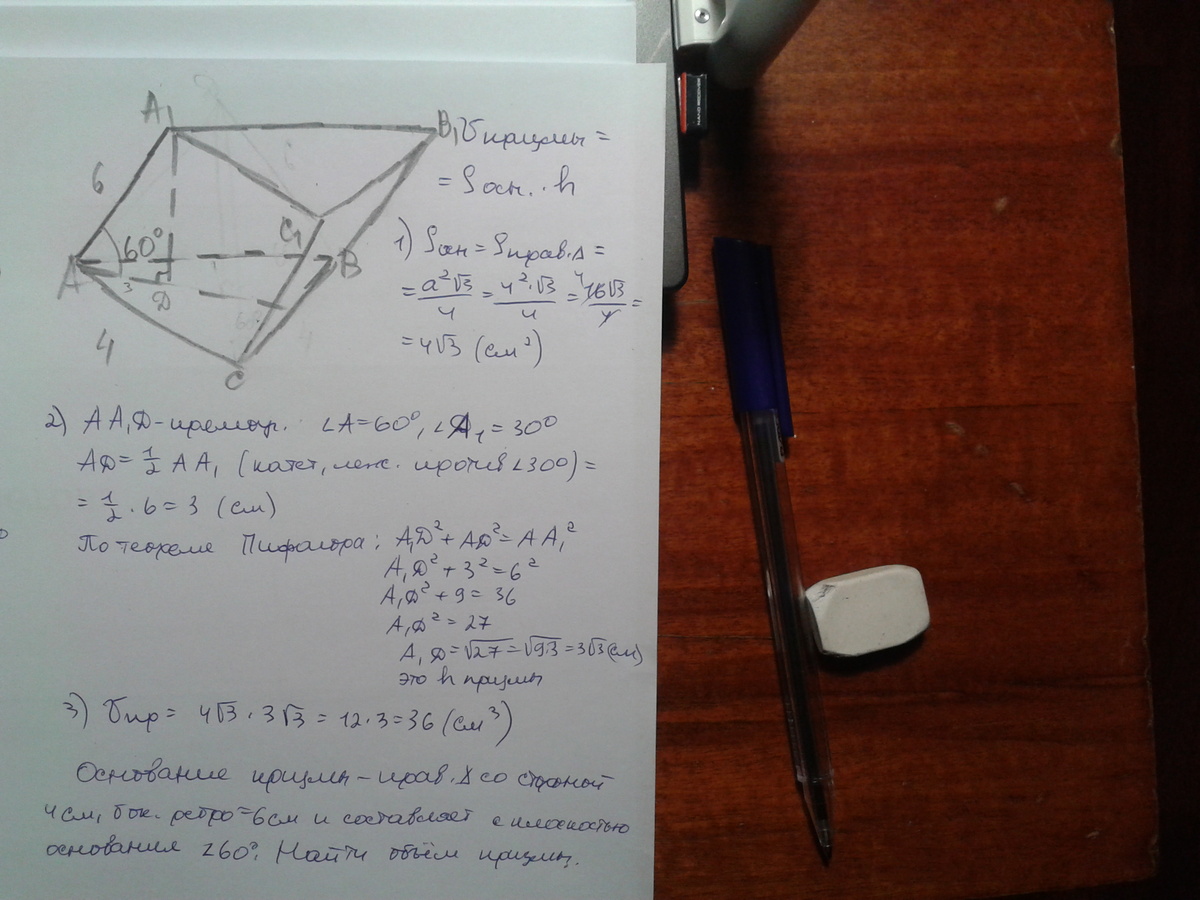 A₁
B₁
6
60°
C₁
A
3
D
B
4
C
Vпризмы =
= Sосн. · h
1) Sосн = Sправ.Δ =
= a²√3/4 = 4²·√3/4 = 16√3/4 =
4
= 4√3 (см²)
2) AA₁D - прямоуг. ∠A = 60°, ∠A₁ = 30°
AD = 1/2 AA₁ (катет, леж. против ∠30°) =
= 1/2 · 6 = 3 (см)
По теореме Пифагора: A₁D² + AD² = AA₁²
A₁D² + 3² = 6²
A₁D² + 9 = 36
A₁D² = 27
A₁D = √27 = √9·3 = 3√3 (см)
это h призмы
3) Vпр = 4√3 · 3√3 = 12 · 3 = 36 (см³)
Основание призмы - прав. Δ со стороной
4 см, бок. ребро = 6 см и составляет с плоскостью
основания ∠60°. Найти объём призмы.